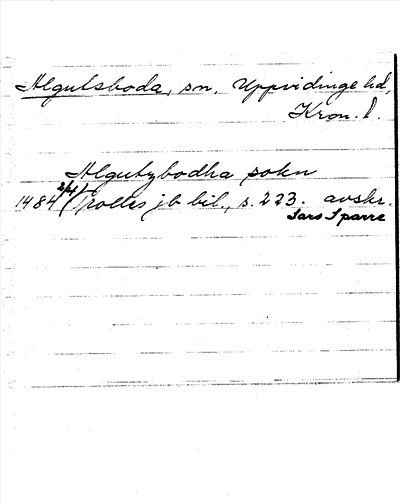 Algutsboda, sn, Uppvidinge hd,
Kron. l.
Algutzbodha sokn
1484 2/4 Trolles jb bil., s. 223. avskr.
Lars Sparre